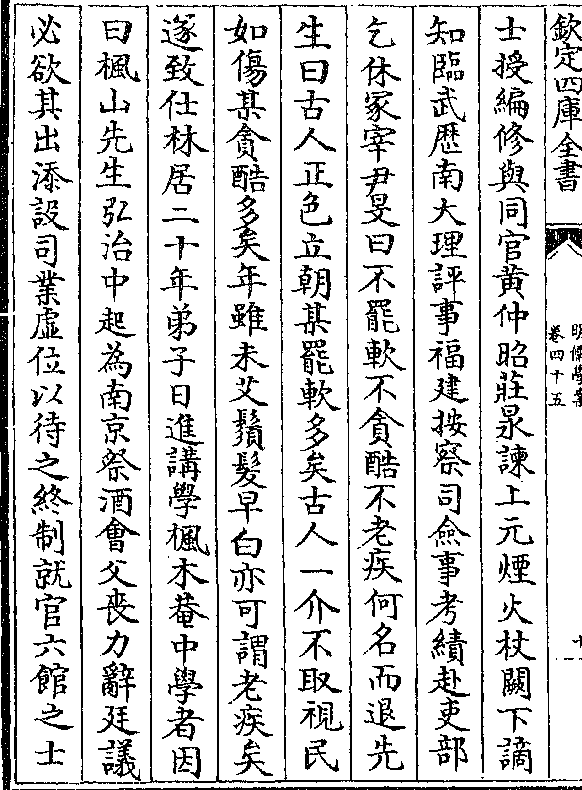 欽定四庫全書
明儒學案
卷四十五
十
士授編修與同官黄仲昭莊㫤諫上元煙火杖闕下謫
知臨武歷南大理評事福建按察司僉事考績赴吏部
乞休冢宰尹旻曰不罷軟不貪酷不老疾何名而退先
生曰古人正色立朝某罷軟多矣古人一介不取視民
如傷某貪酷多矣年雖未艾鬚髮早白亦可謂老疾矣
遂致仕林居二十年弟子日進講學楓木菴中學者因
曰楓山先生弘治中起為南京祭酒會父喪力辭廷議
必欲其出添設司業虚位以待之終制就官六館之士